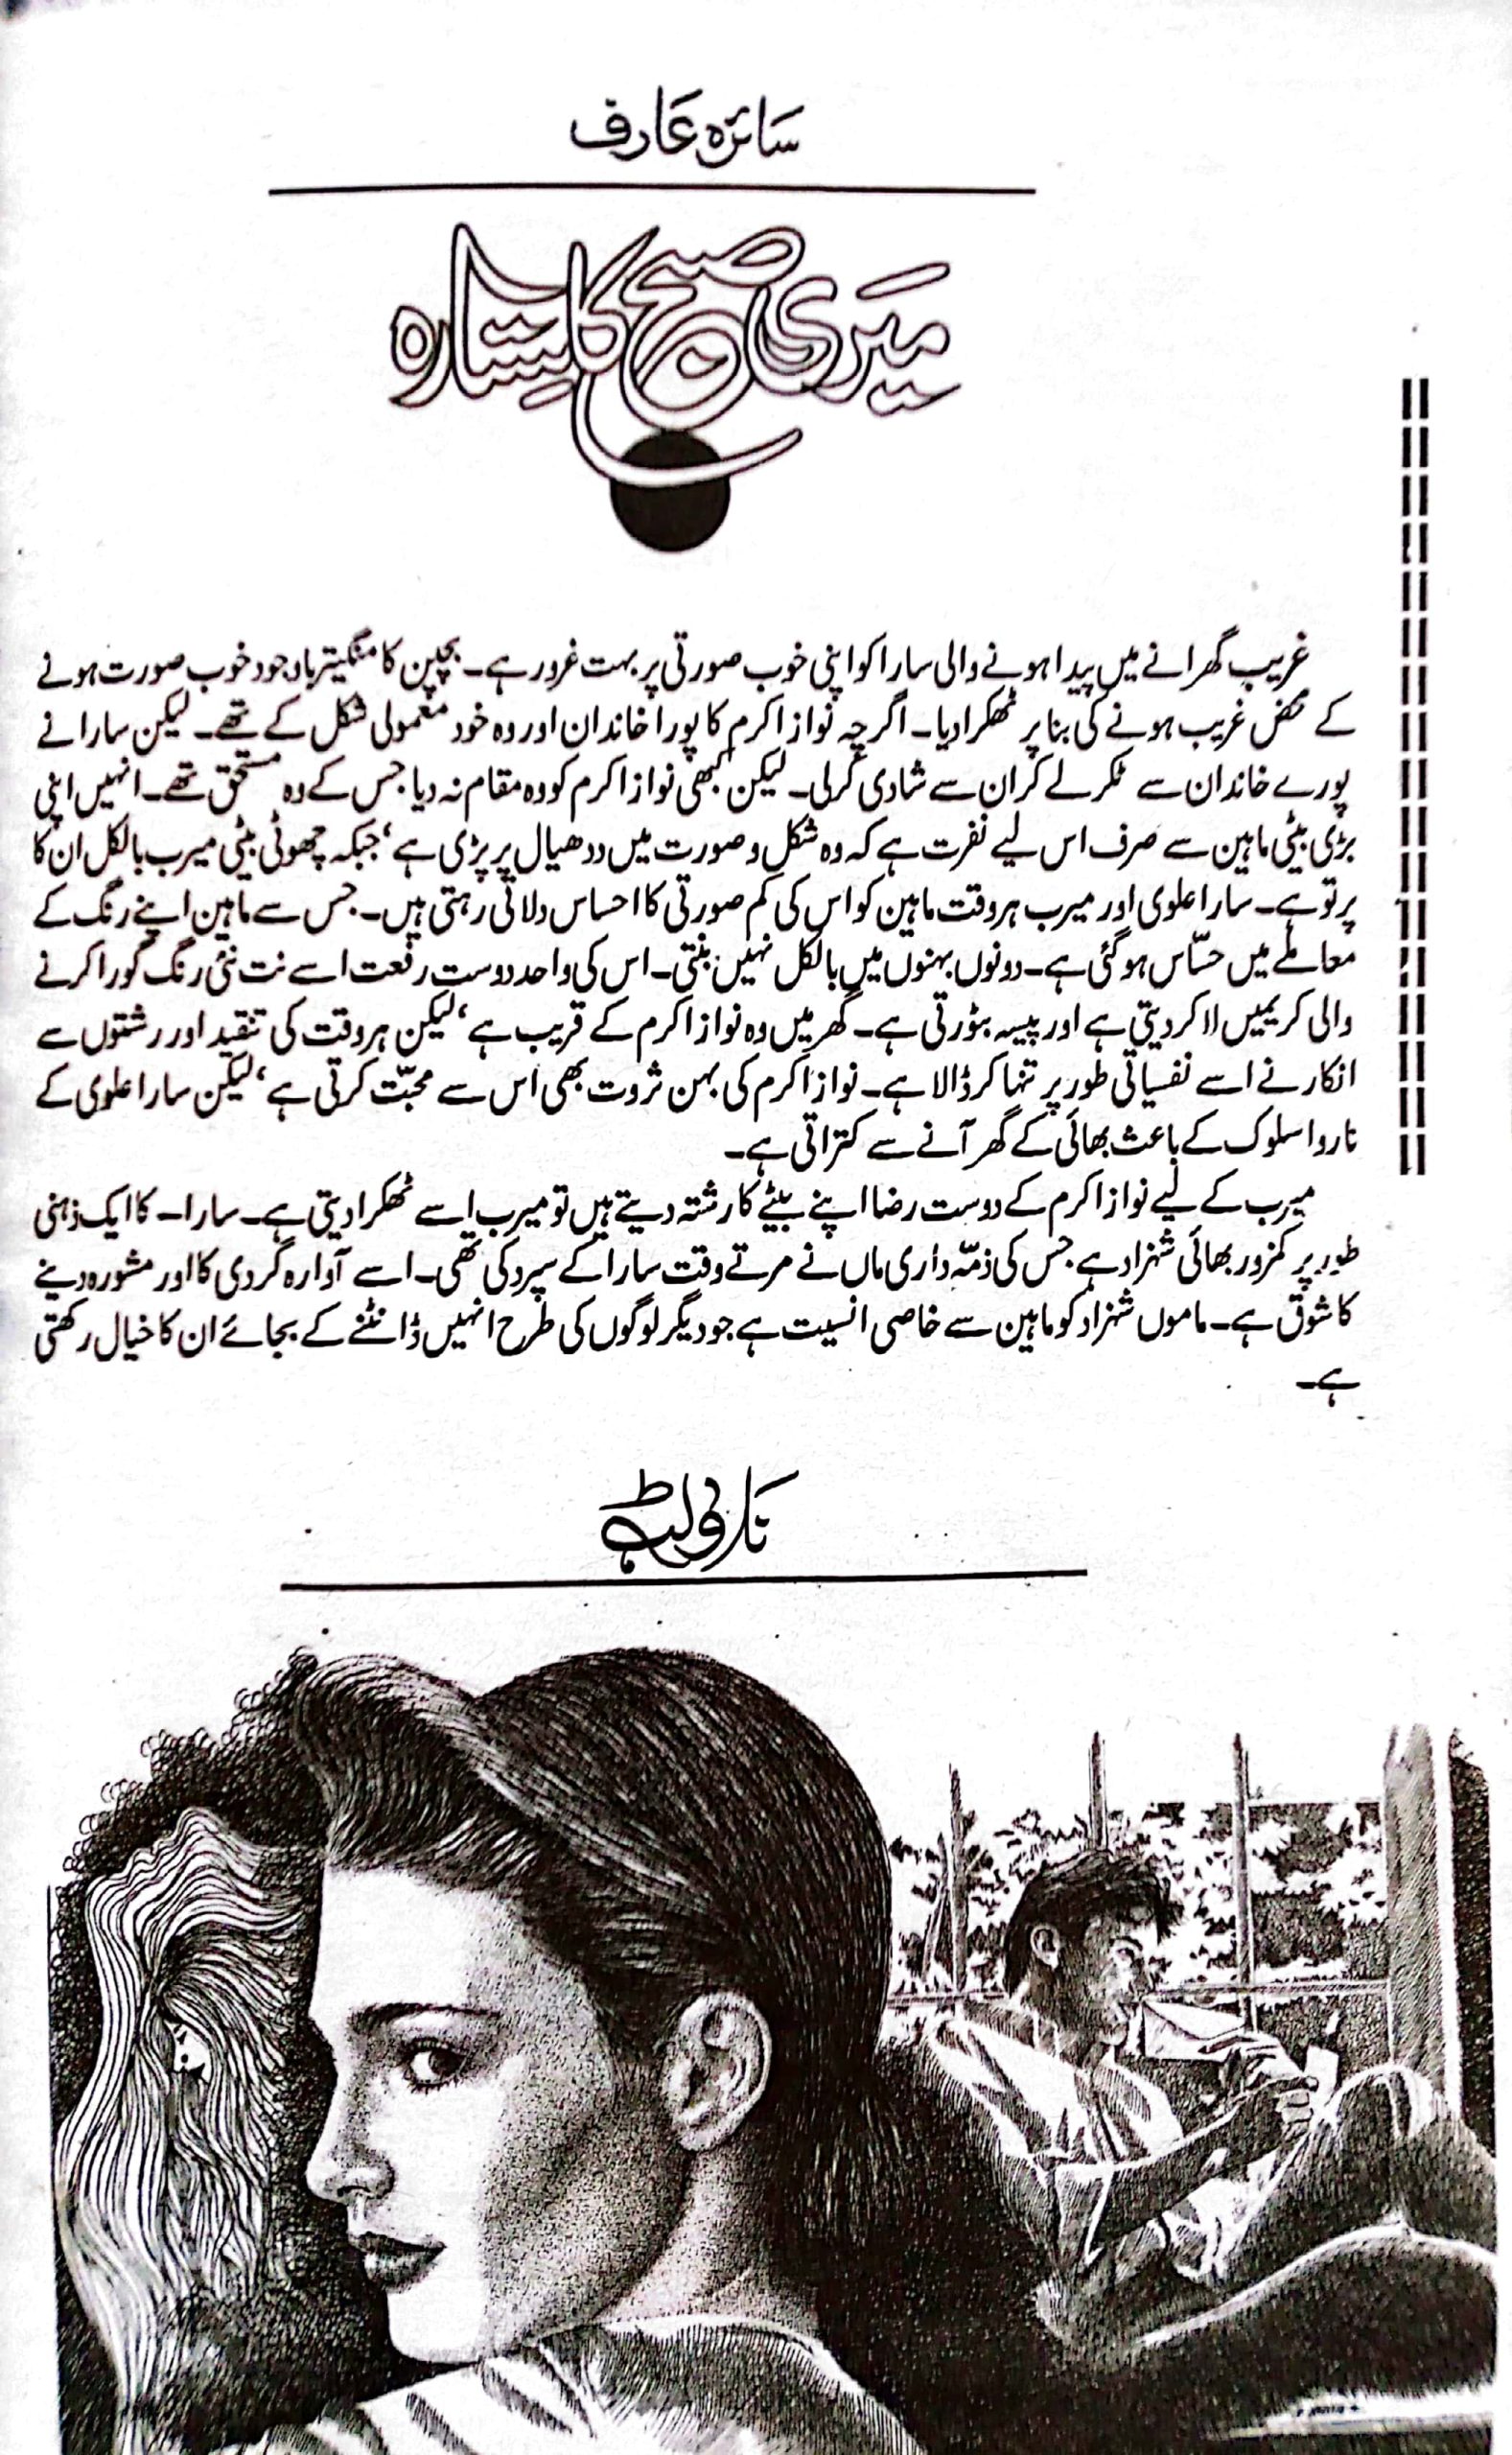 سائرہ عارف
میری صبح کا ستارہ
غریب گھرانے میں پیدا ہونے والی سارا کو اپنی خوب صورتی پر بہت غرور ہے۔ بچپن کا منگیتر باوجود خوب صورت ہونے
کے محض غریب ہونے کی بنا پر ٹھکرا دیا۔ اگرچہ نواز اکرم کا پورا خاندان اور وہ خود معمولی شکل کے تھے۔ لیکن سارا نے
پورے خاندان سے ٹکر لے کر ان سے شادی کرلی۔ لیکن کبھی نواز اکرم کو وہ مقام نہ دیا جس کے وہ مستحق تھے۔ انہیں اپنی
بڑی بیٹی ماہین سے صرف اس لیے نفرت ہے کہ وہ شکل و صورت میں ددھیال پر پڑی ہے‘ جبکہ چھوٹی بیٹی میرب بالکل ان کا
پرتو ہے۔ سارا علوی اور میرب ہر وقت ماہین کو اس کی کم صورتی کا احساس دلاتی رہتی ہیں۔ جس سے ماہین اپنے رنگ کے
معاملے میں حسّاس ہو گئی ہے۔ دونوں بہنوں میں بالکل نہیں بنتی۔ اس کی واحد دوست رفعت اسے نت نئی رنگ گورا کرنے
والی کریمیں لا کر دیتی ہے اور پیسہ بٹورتی ہے۔ گھر میں وہ نواز اکرم کے قریب ہے‘ لیکن ہر وقت کی تنقید اور رشتوں سے
انکار نے اسے نفسیاتی طور پر تنہا کر ڈالا ہے۔ نواز اکرم کی بہن ثروت بھی اس سے محبّت کرتی ہے‘ لیکن سارا علوی کے
ناروا سلوک کے باعث بھائی کے گھر آنے سے کتراتی ہے۔
میرب کے لیے نواز اکرم کے دوست رضا اپنے بیٹے کا رشتہ دیتے ہیں تو میرب اسے ٹھکرا دیتی ہے۔ سارا۔ کا ایک ذہنی
طور پر کمزور بھائی شہزاد ہے جس کی ذمّہ داری ماں نے مرتے وقت سارا کے سپرد کی تھی۔ اسے آوارہ گردی کا اور مشورہ دینے
کا شوق ہے۔ ماموں شہزاد کو ماہین سے خاصی انسیت ہے جو دیگر لوگوں کی طرح انہیں ڈانٹنے کے بجائے ان کا خیال رکھتی
ہے۔
ناولٹ